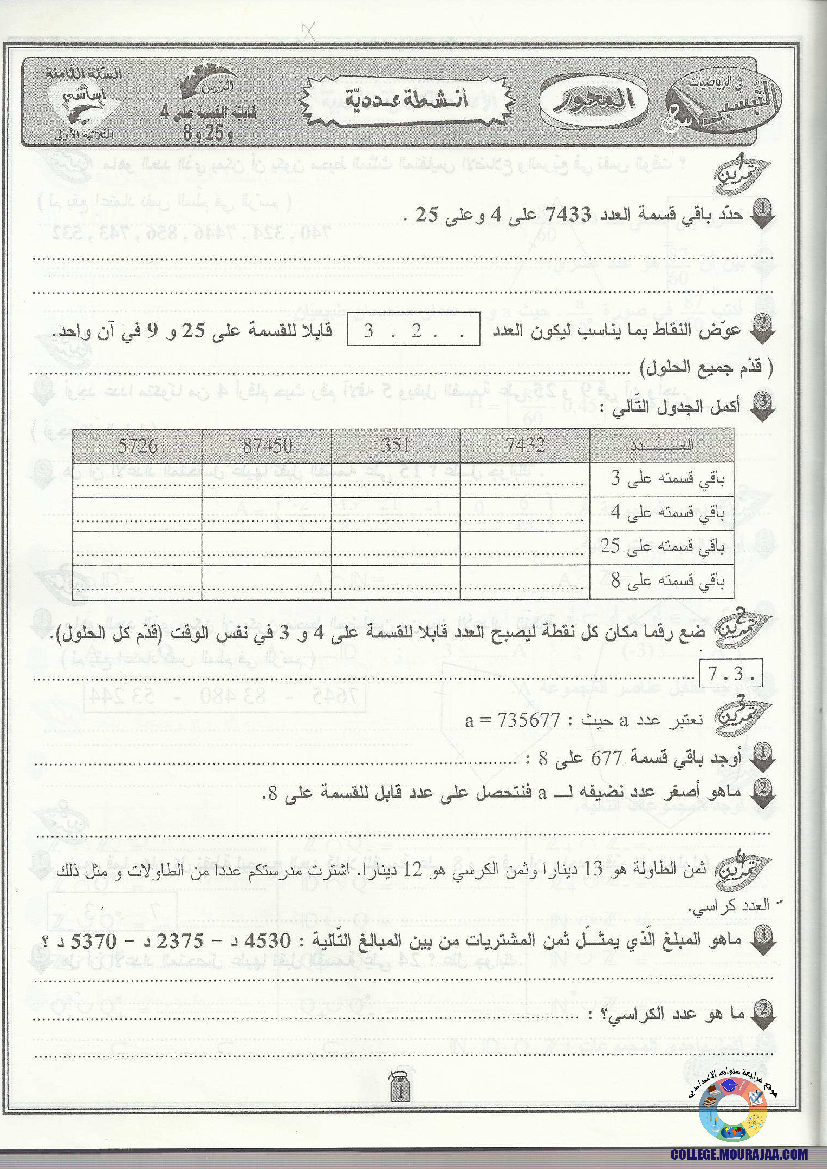 السنة الثامنة
أساسي
الثلاثية الأولى
الدرس
قابلية القسمة على 4
و 25 و 8
أنشطة عددية
المحور
في الرياضيات
تمرين 1
1 حدّد باقي قسمة العدد 7433 على 4 وعلى 25 .
2 عوّض النقاط بما يناسب ليكون العدد 3 . 2 . . قابلا للقسمة على 25 و 9 في آن واحد.
( قدّم جميع الحلول)
3 أكمل الجدول التّالي :
العــــدد 7432 351 87450 5726
باقي قسمته على 3
باقي قسمته على 4
باقي قسمته على 25
باقي قسمته على 8
تمرين 2 ضع رقما مكان كل نقطة ليصبح العدد قابلا للقسمة على 4 و 3 في نفس الوقت (قدّم كل الحلول).
7 . 3 .
تمرين 3 نعتبر عدد a حيث : a = 735677
1 أوجد باقي قسمة 677 على 8 :
2 ماهو أصغر عدد نضيفه لــ a فنتحصل على عدد قابل للقسمة على 8.
تمرين 4 ثمن الطاولة هو 13 دينارا وثمن الكرسي هو 12 دينارا. اشترت مدرستكم عددا من الطاولات و مثل ذلك
العدد كراسي.
1 ماهو المبلغ الّذي يمثّــل ثمن المشتريات من بين المبالغ التّالية : 4530 د – 2375 د – 5370 د ؟
2 ما هو عدد الكراسي؟ :
1
موقع مراجعة
COLLEGE.MOURAJAA.COM